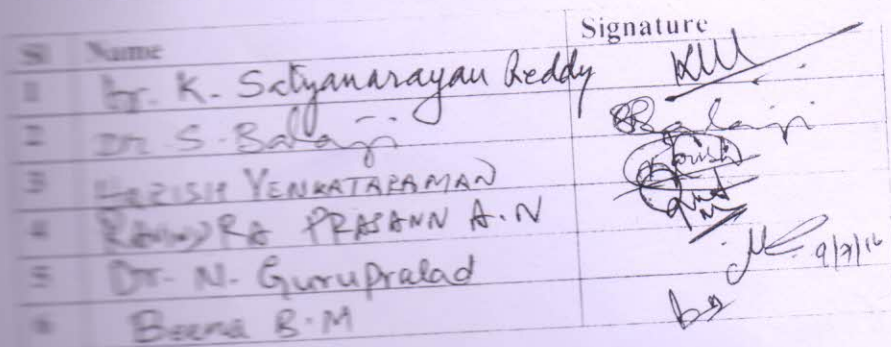 Sl Name Signature
1 Dr. K. Satyanarayan Reddy
2 Dr. S. Balaji Balaji
3 HARISH VENKATARAMAN Harish
4 RAVINDRA PRASANN A.N
5 Dr. N. Guruprasad 9/7/16
6 Beena B.M